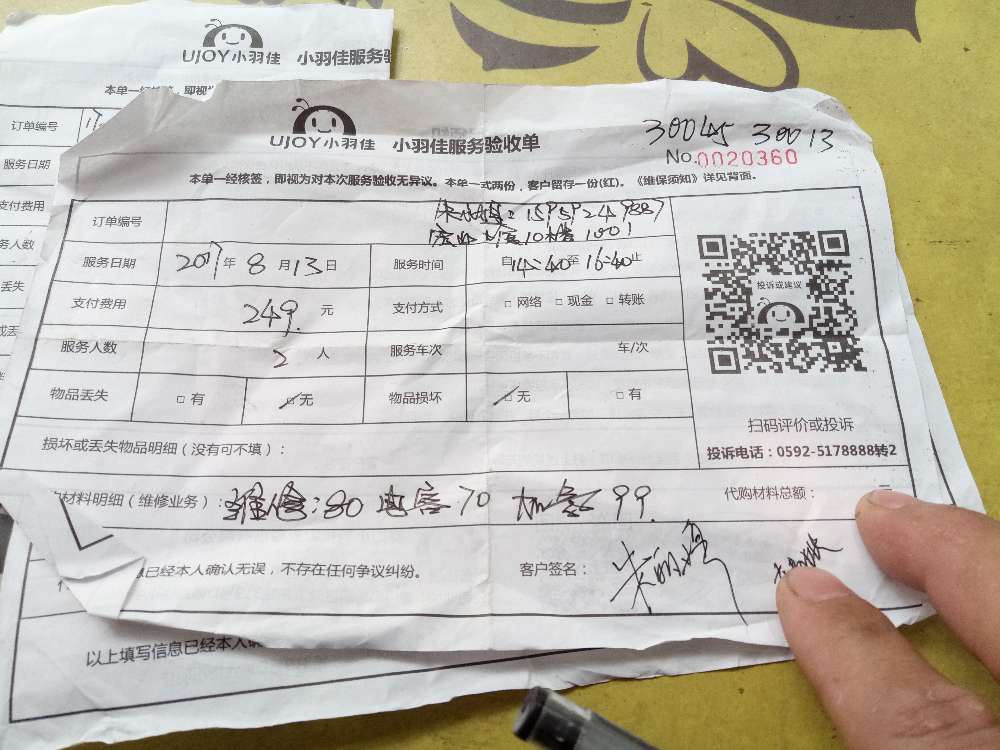 UJOY小羽佳 小羽佳服务验
本单一经核签，即视为
订单编号
服务日期
支付费用
务人数
丢失
或丢
以上填写信息已经本人确
UJOY小羽佳 小羽佳服务验收单
30045 30013
No.0020360
本单一经核签，即视为对本次服务验收无异议。本单一式两份，客户留存一份(红)。《维保须知》详见背面。
订单编号
服务日期 2017年8月13日 服务时间 自14:40至16:40止
支付费用 249 元 支付方式 □网络 □现金 □转账
服务人数 2 人 服务车次 车/次
物品丢失 □有 □无 物品损坏 □无 □有
投诉或建议
扫码评价或投诉
投诉电话：0592-5178888转2
损坏或丢失物品明细（没有可不填）：
材料明细（维修业务）：维修：80 电容 70 加氨 99
代购材料总额： 元
息已经本人确认无误，不存在任何争议纠纷。 客户签名：